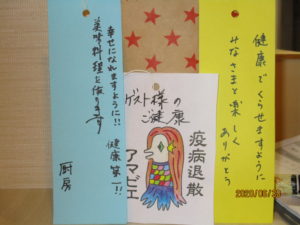 健康でくらせますように
みなさまと楽しく
ありがとう
ゲスト様の
ご健康
疫病退散
アマビエ
幸せになれますように!!
美味料理を作ります
健康第一!!
厨房